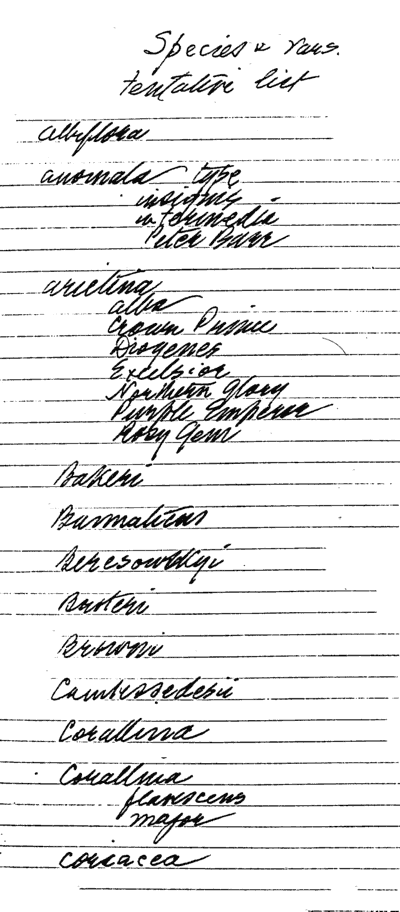 Species & vars.
tentative list
albiflora
anomala type
insignis
intermedia
Peter Barr
arietina
alba
Crown Prince
Diogenes
Excelsior
Northern Glory
Purple Emperor
Rosy Gem
Bakeri
Beresowskyi
Broteri
Browni
Cambessedesii
Corallina
Corallina
flavescens
major
coriacea